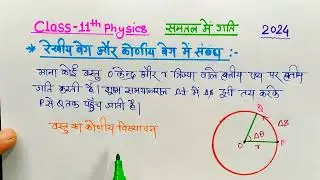 Class-11th Physics समतल में गति 2024
* रेखीय वेग और कोणीय वेग में संबंध :-
माना कोई वस्तु O केन्द्र और r त्रिज्या वाले वृत्तीय पथ पर वृत्तीय
गति करती है। वस्तु समयान्तराल Δt में ΔS दूरी तय करके
P से Q तक पहुँच जाती है।
वस्तु का कोणीय विस्थापन
Q
ΔS
Δθ
O r P